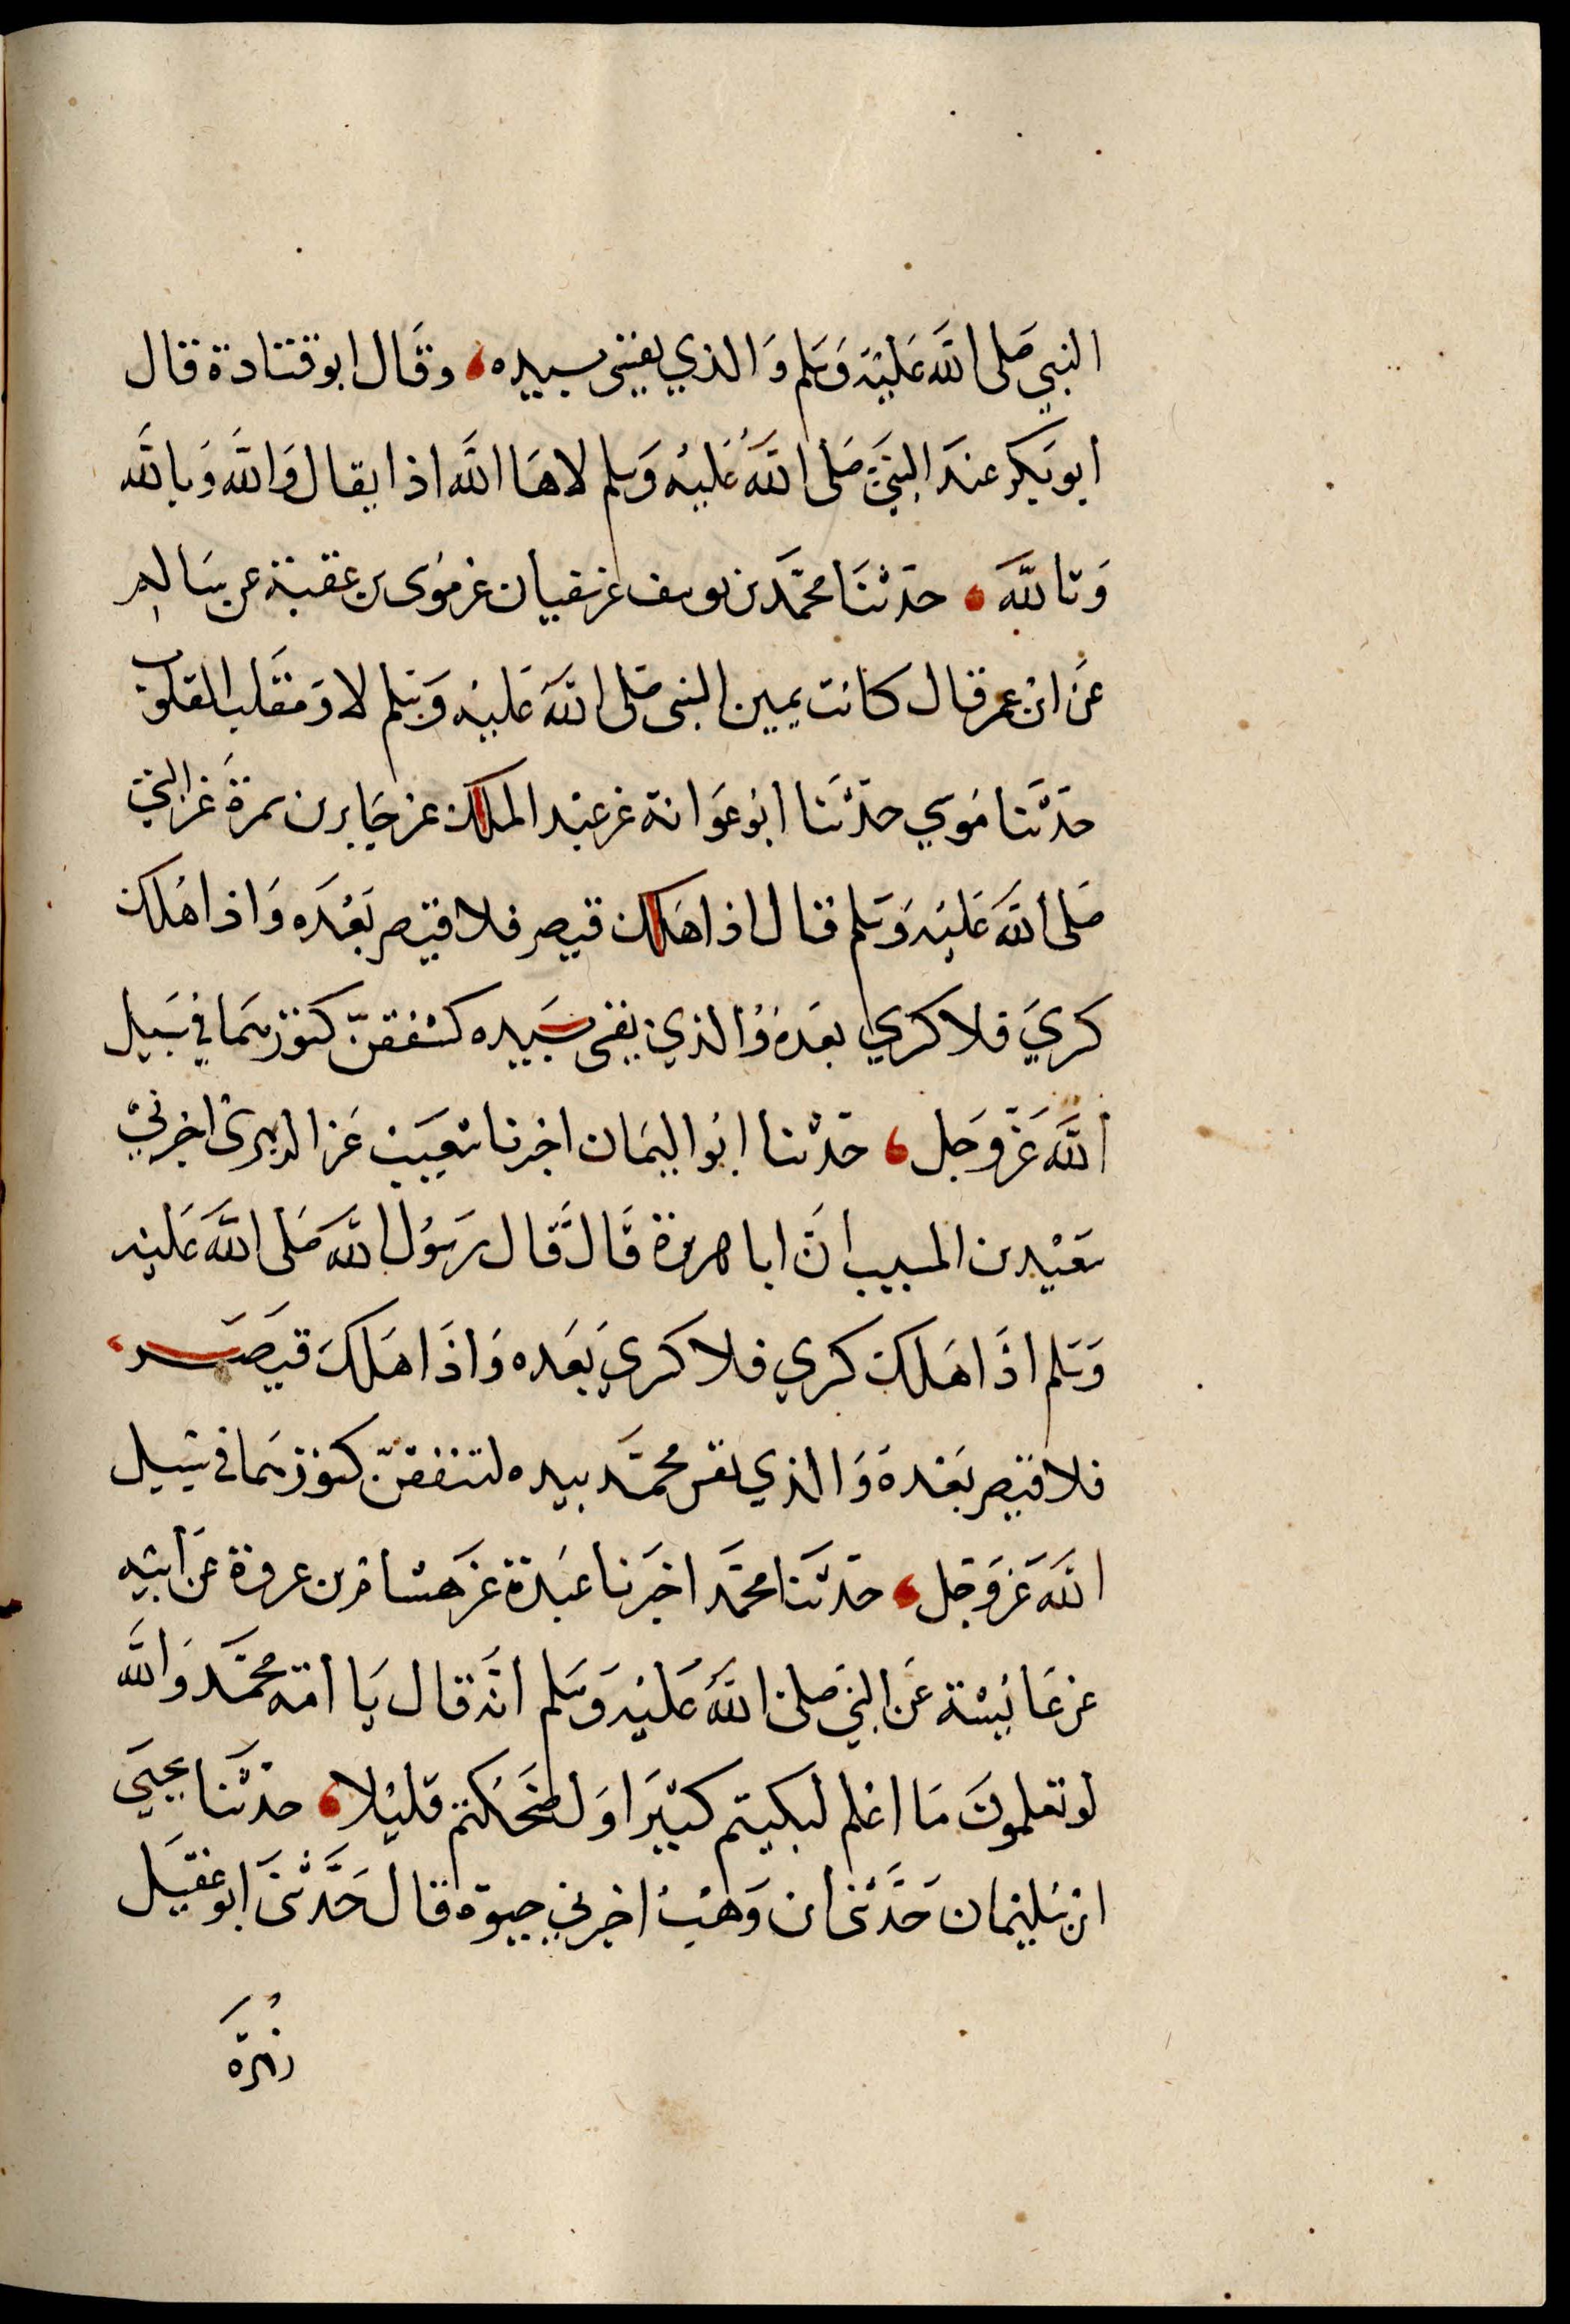 النبي صَلى اللَّه عَليْه وَسَلم وَالذي نفسي بيده، وقَال ابو قتادة قال
ابو بَكر عندَ النبيّ صَلى اللَّهُ عَليْه وَسلم لاهَا اللَّه اذا يقال وَاللَّه وَباللَّه
وَتاللَّه، حدثنَا محمَّد بن يوسف عن سفيان عن مُوسى بن عقبة عن سَالم
عَن ابن عمر قال كانت يمين النبي صَلى اللَّه عَليْه وَسلم لا وَمقَلب القلوب
حَدثنَا مُوسي حدَّثنَا ابُو عَوَانة عن عبْد الملك عن جَابر بن سمرةَ عَن النبي
صَلى اللَّه عَليْه وَسَلم قال اذا هَلك قيصر فلا قيصر بَعْدَه وَاذا هَلك
كسريَ فلا كسري بعدَهُ وَالذي نفسي بيَده لتنفقنّ كنوزهمَا في سَبيل
اللَّه عَزّ وَجَل، حَدثنا ابُو اليمَان اخبرنا شعيب عَن الزهرىّ اخبرنيْ
سَعيْد بن المسيب انَّ ابا هريرة قَال قَال رَسُول اللَّه صَلى اللَّه عَليه
وَسَلم اذَا هَلك كسري فلا كسريَ بَعَده وَاذَا هَلكَ قيصَر،
فلا قيصر بَعْدهَ وَالذي نفس محمَّد بيده لتنفقنّ كنوزهمَا في سَبيل
اللَّه عَزّ وَجَل، حَدثنَا محمَّد اخبَرنا عَبْدة عَن هَشام بن عروة عَن أبيه
عن عَائشة عَن النبي صَلى اللَّهُ عَليْه وَسَلم انَّه قال يَا أمّة محمَّد وَاللَّه
لو تعلموُنَ مَا اعْلم لبكيتم كثيْرَا وَلضحَكتم قليْلا، حَدثنا يحيَي
ابن سُليمان حَدَّثنى ابن وَهْب اخبرني حيوة قال حَدَّثنىَ ابو عَقيْل
زهرة